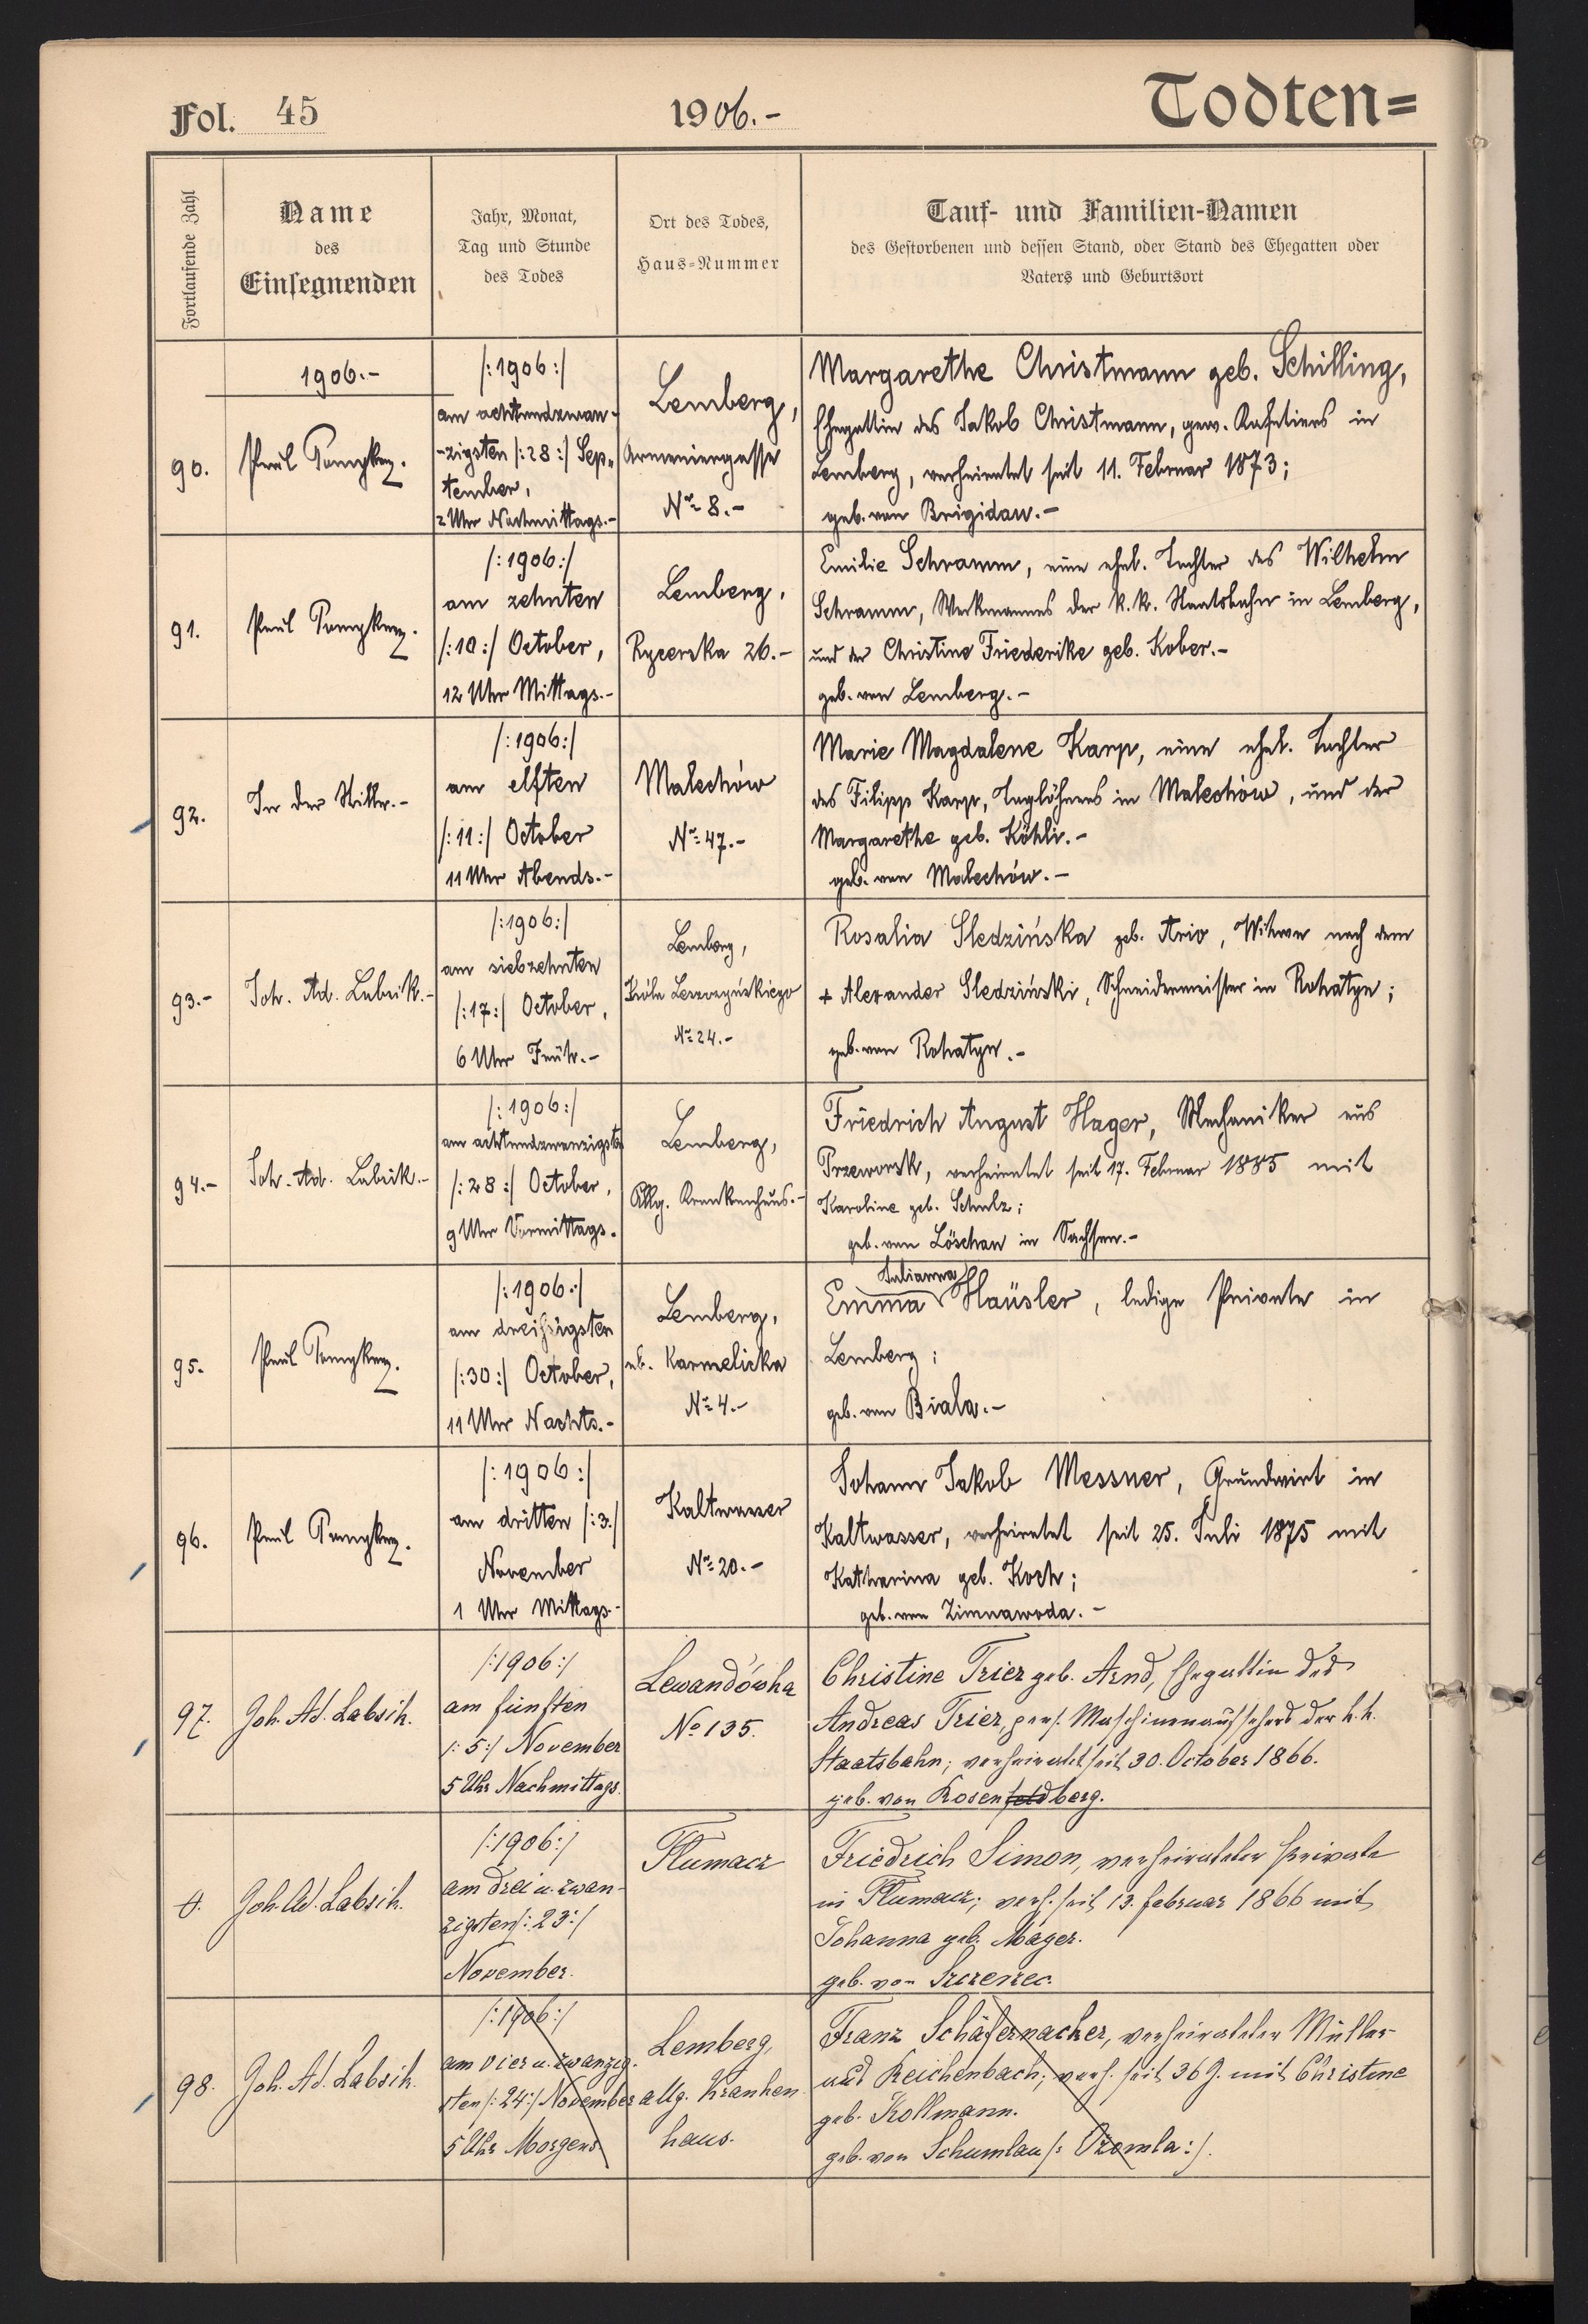 Fol. 45
1906.-
Todten=
Fortlaufende Zahl
Name
des
Einsegnenden
Jahr, Monat,
Tag und Stunde
des Todes
Ort des Todes,
Haus-Nummer
Tauf- und Familien-Namen
des Gestorbenen und dessen Stand, oder Stand des Ehegatten oder
Vaters und Geburtsort
1906.-
90.
Paul
/:1906:/
am achtundzwan-
-zigsten /:28:/ Sep„
tember,
2 Uhr Nachmittags.-
Lemberg,
Armeniergasse
No 8.-
Margarethe Christmann geb. Schilling,
Ehegattin des Jakob Christmann, gew. Kafetiers in
Lemberg, verheiratet seit 11. Februar 1873;
geb. von Brigidau.-
91.
Paul
/:1906:/
am zehnten
/:10:/ October,
12 Uhr Mittags.-
Lemberg,
Rycerska 26.-
Emilie Schramm, eine ehel. Tochter des Wilhelm
Schramm, Werkmannes der k.k. Staatsbahn in Lemberg,
und der Christine Friederike geb. Kober.-
geb. von Lemberg.-
92.
In der Stille.-
/:1906:/
am elften
/:11:/ October
11 Uhr Abends.-
Malechów
No 47.-
Marie Magdalene Karp, eine ehel. Tochter
des Filipp Karp, Taglöhners in Malechów, und der
Margarethe geb. Köhli.-
geb. von Malechów.-
93.-
Joh. Ad. Labsik.-
/:1906:/
am siebzehnten
/:17:/ October,
6 Uhr Früh.-
Lemberg,
Króla Leszczyńskiego
No 24.-
Rosalia Sledzińska geb. Ario, Witwe nach dem
+ Alexander Sledziński, Schneidermeister in Rohatyn;
geb. von Rohatyn.-
94.-
Joh. Ad. Labsik.-
/:1906:/
am achtundzwanzigsten
/:28:/ October,
9 Uhr Vormittags.
Lemberg,
Allg. Krankenhaus.-
Friedrich August Hager, Mechaniker aus
Przeworsk, verheiratet seit 17. Februar 1885 mit
Karoline geb. Schulz;
geb. von Löschau in Sachsen.-
95.
Paul
/:1906:/
am dreißigsten
/:30:/ October,
11 Uhr Nachts.-
Lemberg,
ul. Karmelicka
No 4.-
Julianna
Emma Haüsler, ledige Private in
Lemberg;
geb. von Biala.-
96.
Paul
/:1906:/
am dritten /:3:/
November
1 Uhr Mittags.-
Kaltwasser
No 20.-
Johann Jakob Messner, Grundwirt in
Kaltwasser, verheiratet seit 25. Juli 1875 mit
Katharina geb. Koch;
geb. von Zimnawoda.-
97.
Joh. Ad. Labsik.
/:1906:/
am fünften
/:5:/ November
5 Uhr Nachmittags.
Lewandówka
No 135.
Christine Trier geb. Arnd, Ehegattin des
Andreas Trier, pens. Maschinenaufsehers der k.k.
Staatsbahn; verheiratet seit 30. October 1866.
geb. von Rosenfeldberg.
0.
Joh. Ad. Labsik.
/:1906:/
am drei u. zwan-
zigsten /:23:/
November.
Tlumacz
Friedrich Simon, verheirateter Private
in Tlumacz; verh. seit 13. Februar 1866 mit
Johanna geb. Mager.
geb. von Szczerzec.
98.
Joh. Ad. Labsik.
/:1906:/
am vier u. zwanzig-
sten /:24:/ November
5 Uhr Morgens
Lemberg,
allg. Kranken
haus.
Franz Schäfernacker, verheirateter Müller
aus Reichenbach; verh. seit 36 J. mit Christine
geb. Kollmann.
geb. von Schumlau /: Ozomla:/.